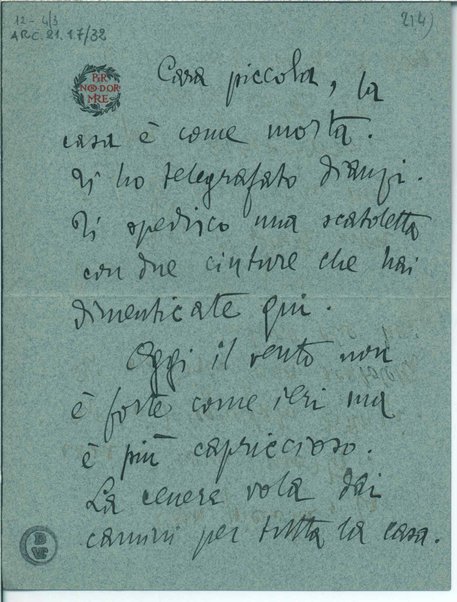 12 - 4/3
ARC. 21. 17/32
214)
PER
NON DOR
MIRE
Cara piccola, la
casa è come morta.
Ti ho telegrafato dianzi.
Ti spedisco una scatoletta
con due cinture che hai
dimenticate qui.
Oggi il vento non
è forte come ieri ma
è più capriccioso.
La cenere vola dai
camini per tutta la casa.